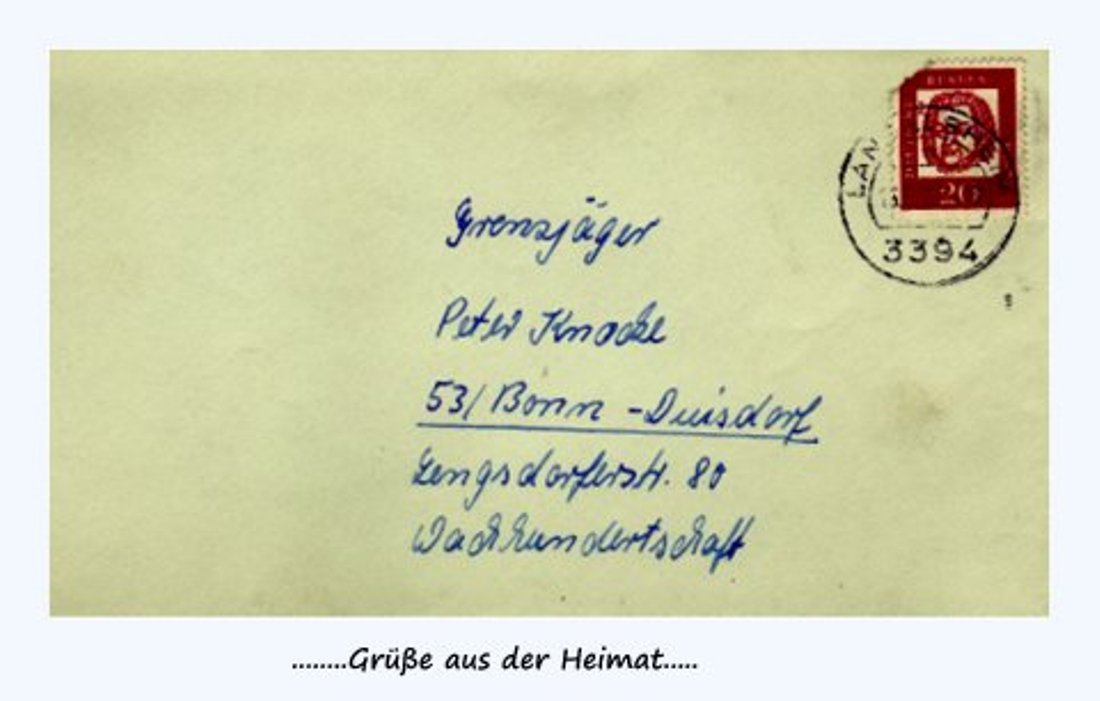 BUNDES
LAN
20
3394
Grenzjäger
Peter Knocke
53/ Bonn - Duisdorf
Lengsdorferstr. 80
Wachhundertschaft
........Grüße aus der Heimat.....